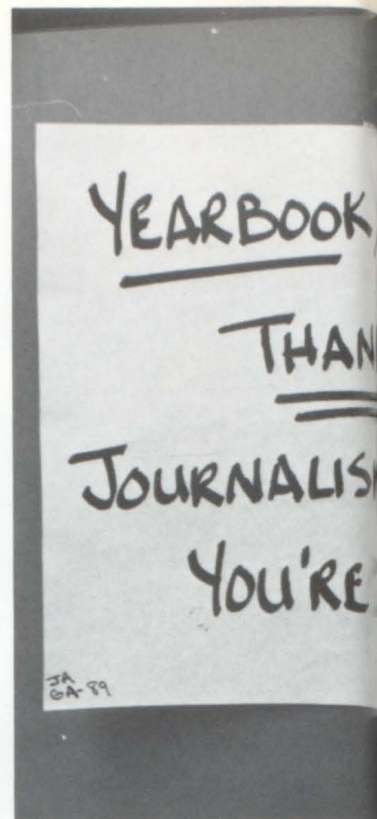 YEARBOOK,
THAN
JOURNALIS
YOU'RE
JA
GA-89